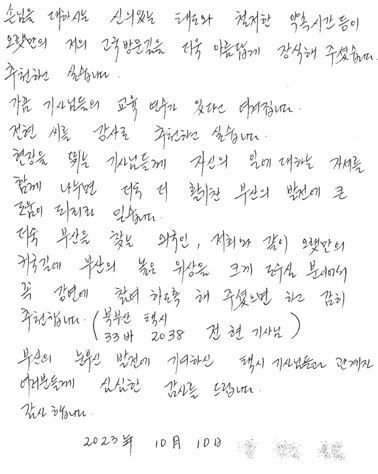 손님을 대하시는 신의있는 태도와 철저한 약속시간 등이
오랫만의 저의 고국방문길을 더욱 아름답게 장식해 주셨습니다.
추천하고 싶습니다.
가끔 기사님들의 교육 연수가 있다고 여겨집니다.
전현 씨를 강사로 추천하고 싶습니다.
현장을 뛰는 기사님들께 자신의 일에 대하는 자세를
함께 나누면 더욱 더 활기찬 부산의 발전에 큰
도움이 되리라 믿습니다.
더욱 부산을 찾는 외국인, 저희와 같이 오랫만의
귀국길에 부산의 높은 위상을 크게 높이실 분이어서
꼭 강연에 참여 하도록 해 주셨으면 하고 감히
추천합니다. (북부산 택시
33바 2038 전현 기사님)
부산의 눈부신 발전에 기여하신 택시 기사님들과 관계자
여러분들께 심심한 감사를 드립니다.
감사 합니다.
2023년 10月 10日